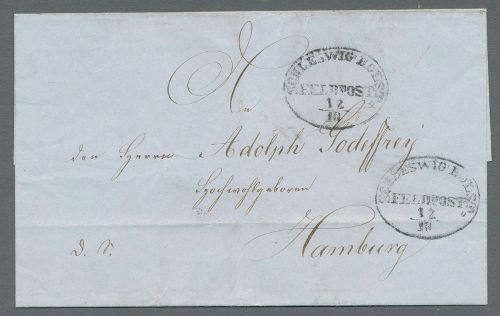 SCHLESWIG HOLST.
FELDPOST
12
10
An
den Herrn Adolph Godeffroy
Hochwohlgeboren
d. S. Hamburg
SCHLESWIG HOLST.
FELDPOST
12
10